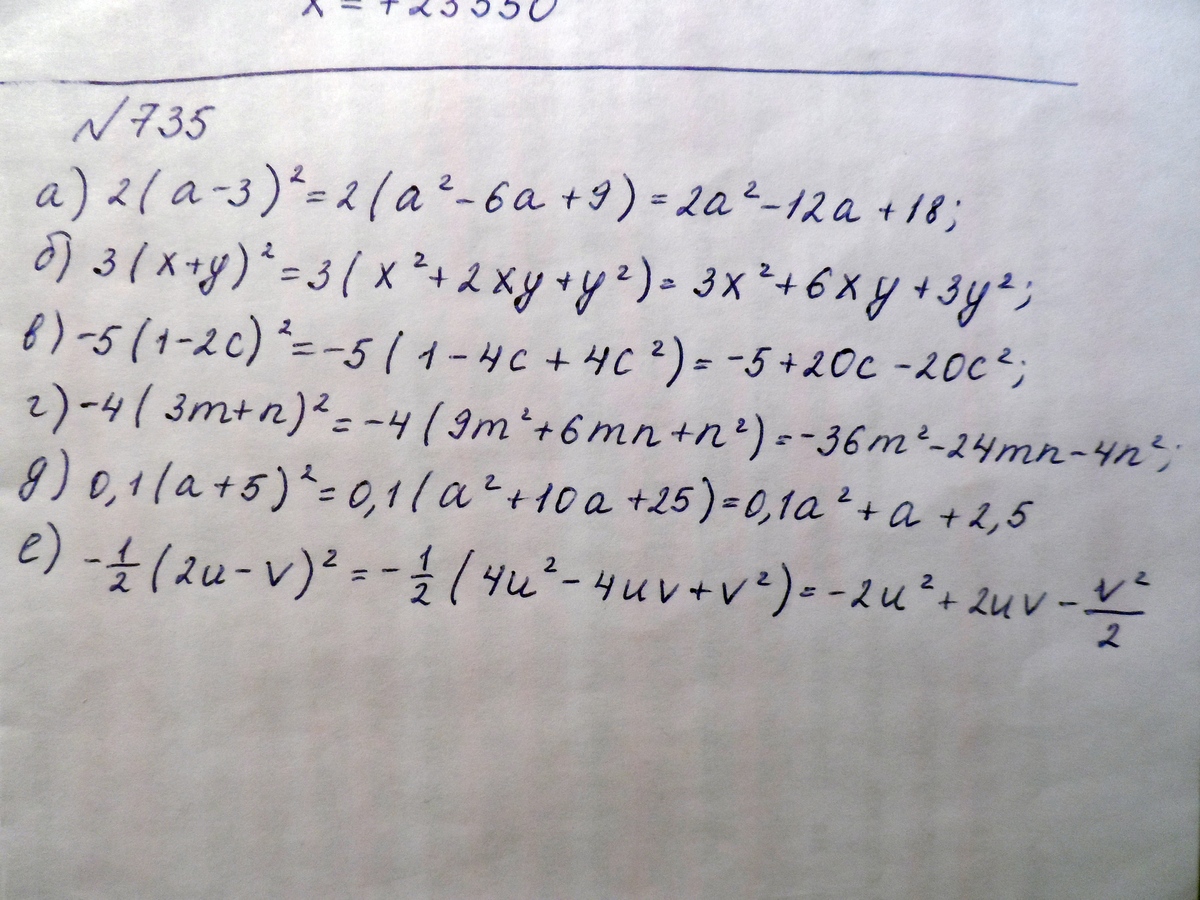 №735
а) 2(a-3)²=2(a²-6a+9)=2a²-12a+18;
б) 3(x+y)²=3(x²+2xy+y²)=3x²+6xy+3y²;
в) -5(1-2c)²=-5(1-4c+4c²)=-5+20c-20c²;
г) -4(3m+n)²=-4(9m²+6mn+n²)=-36m²-24mn-4n²;
д) 0,1(a+5)²=0,1(a²+10a+25)=0,1a²+a+2,5
е) -1/2(2u-v)²=-1/2(4u²-4uv+v²)=-2u²+2uv-v²/2